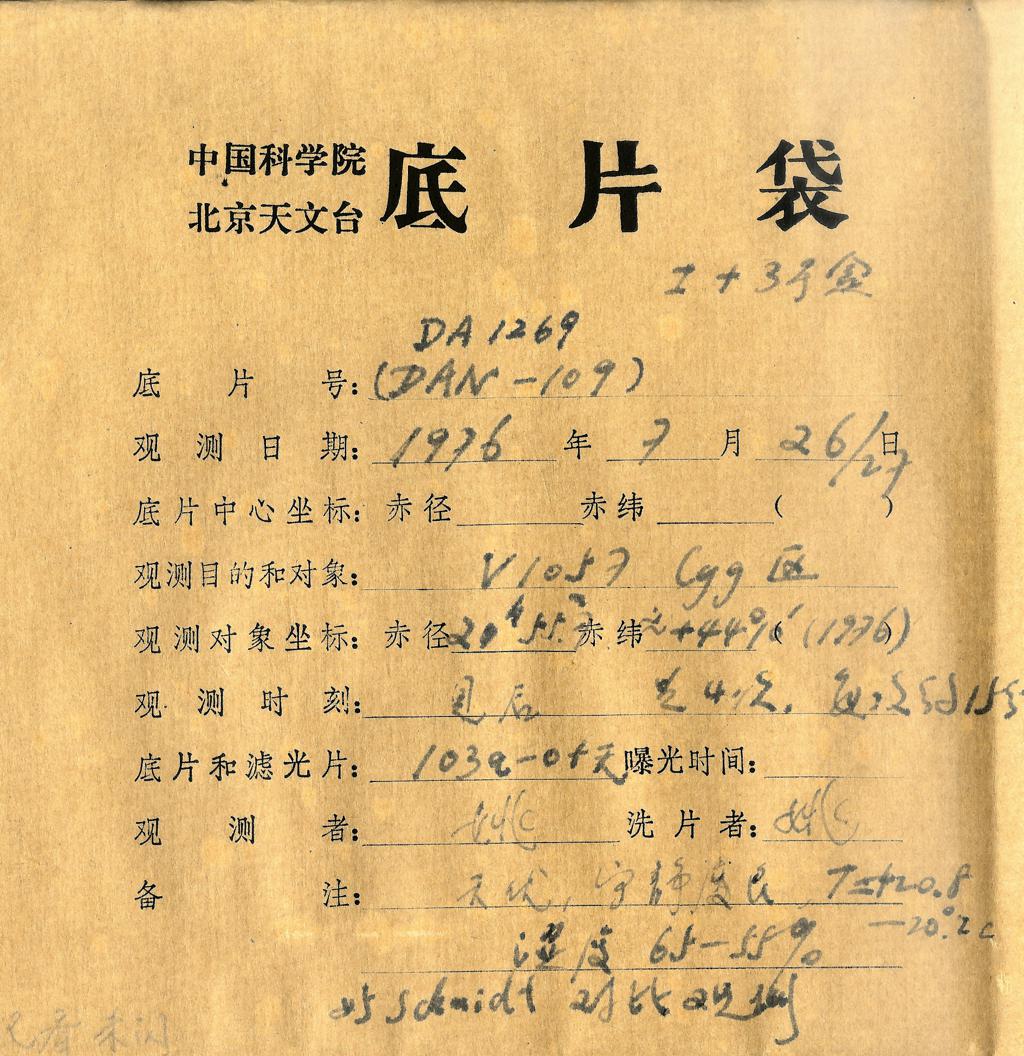 中国科学院 底片袋
北京天文台
I + 3号盒
DA 1269
底片号: (DAN-109)
观测日期: 1976 年 7 月 26/27 日
底片中心坐标: 赤径 赤纬 ( )
观测目的和对象: V1057 Cyg 区
观测对象坐标: 赤径 赤纬 ( ) (1976)
观测时刻: 见后 4次,
底片和滤光片: 103a-O+无 曝光时间:
观测者: 姚 洗片者: 姚
备注: 宁静度良, T=+20.8
—20°.2c
湿度 65—55%
与Schmidt 对比观测